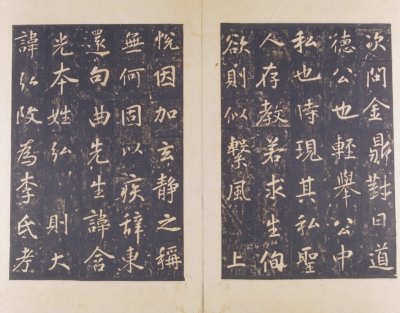 次問金鼎對曰道
德公也輕舉公中
私也時現其私聖
人存教若求生徇
欲則似繫風　上
悅因加玄靜之稱
無何固以疾辭東
還句曲先生諱含
光本姓弘　則大
諱弘改為李氏孝